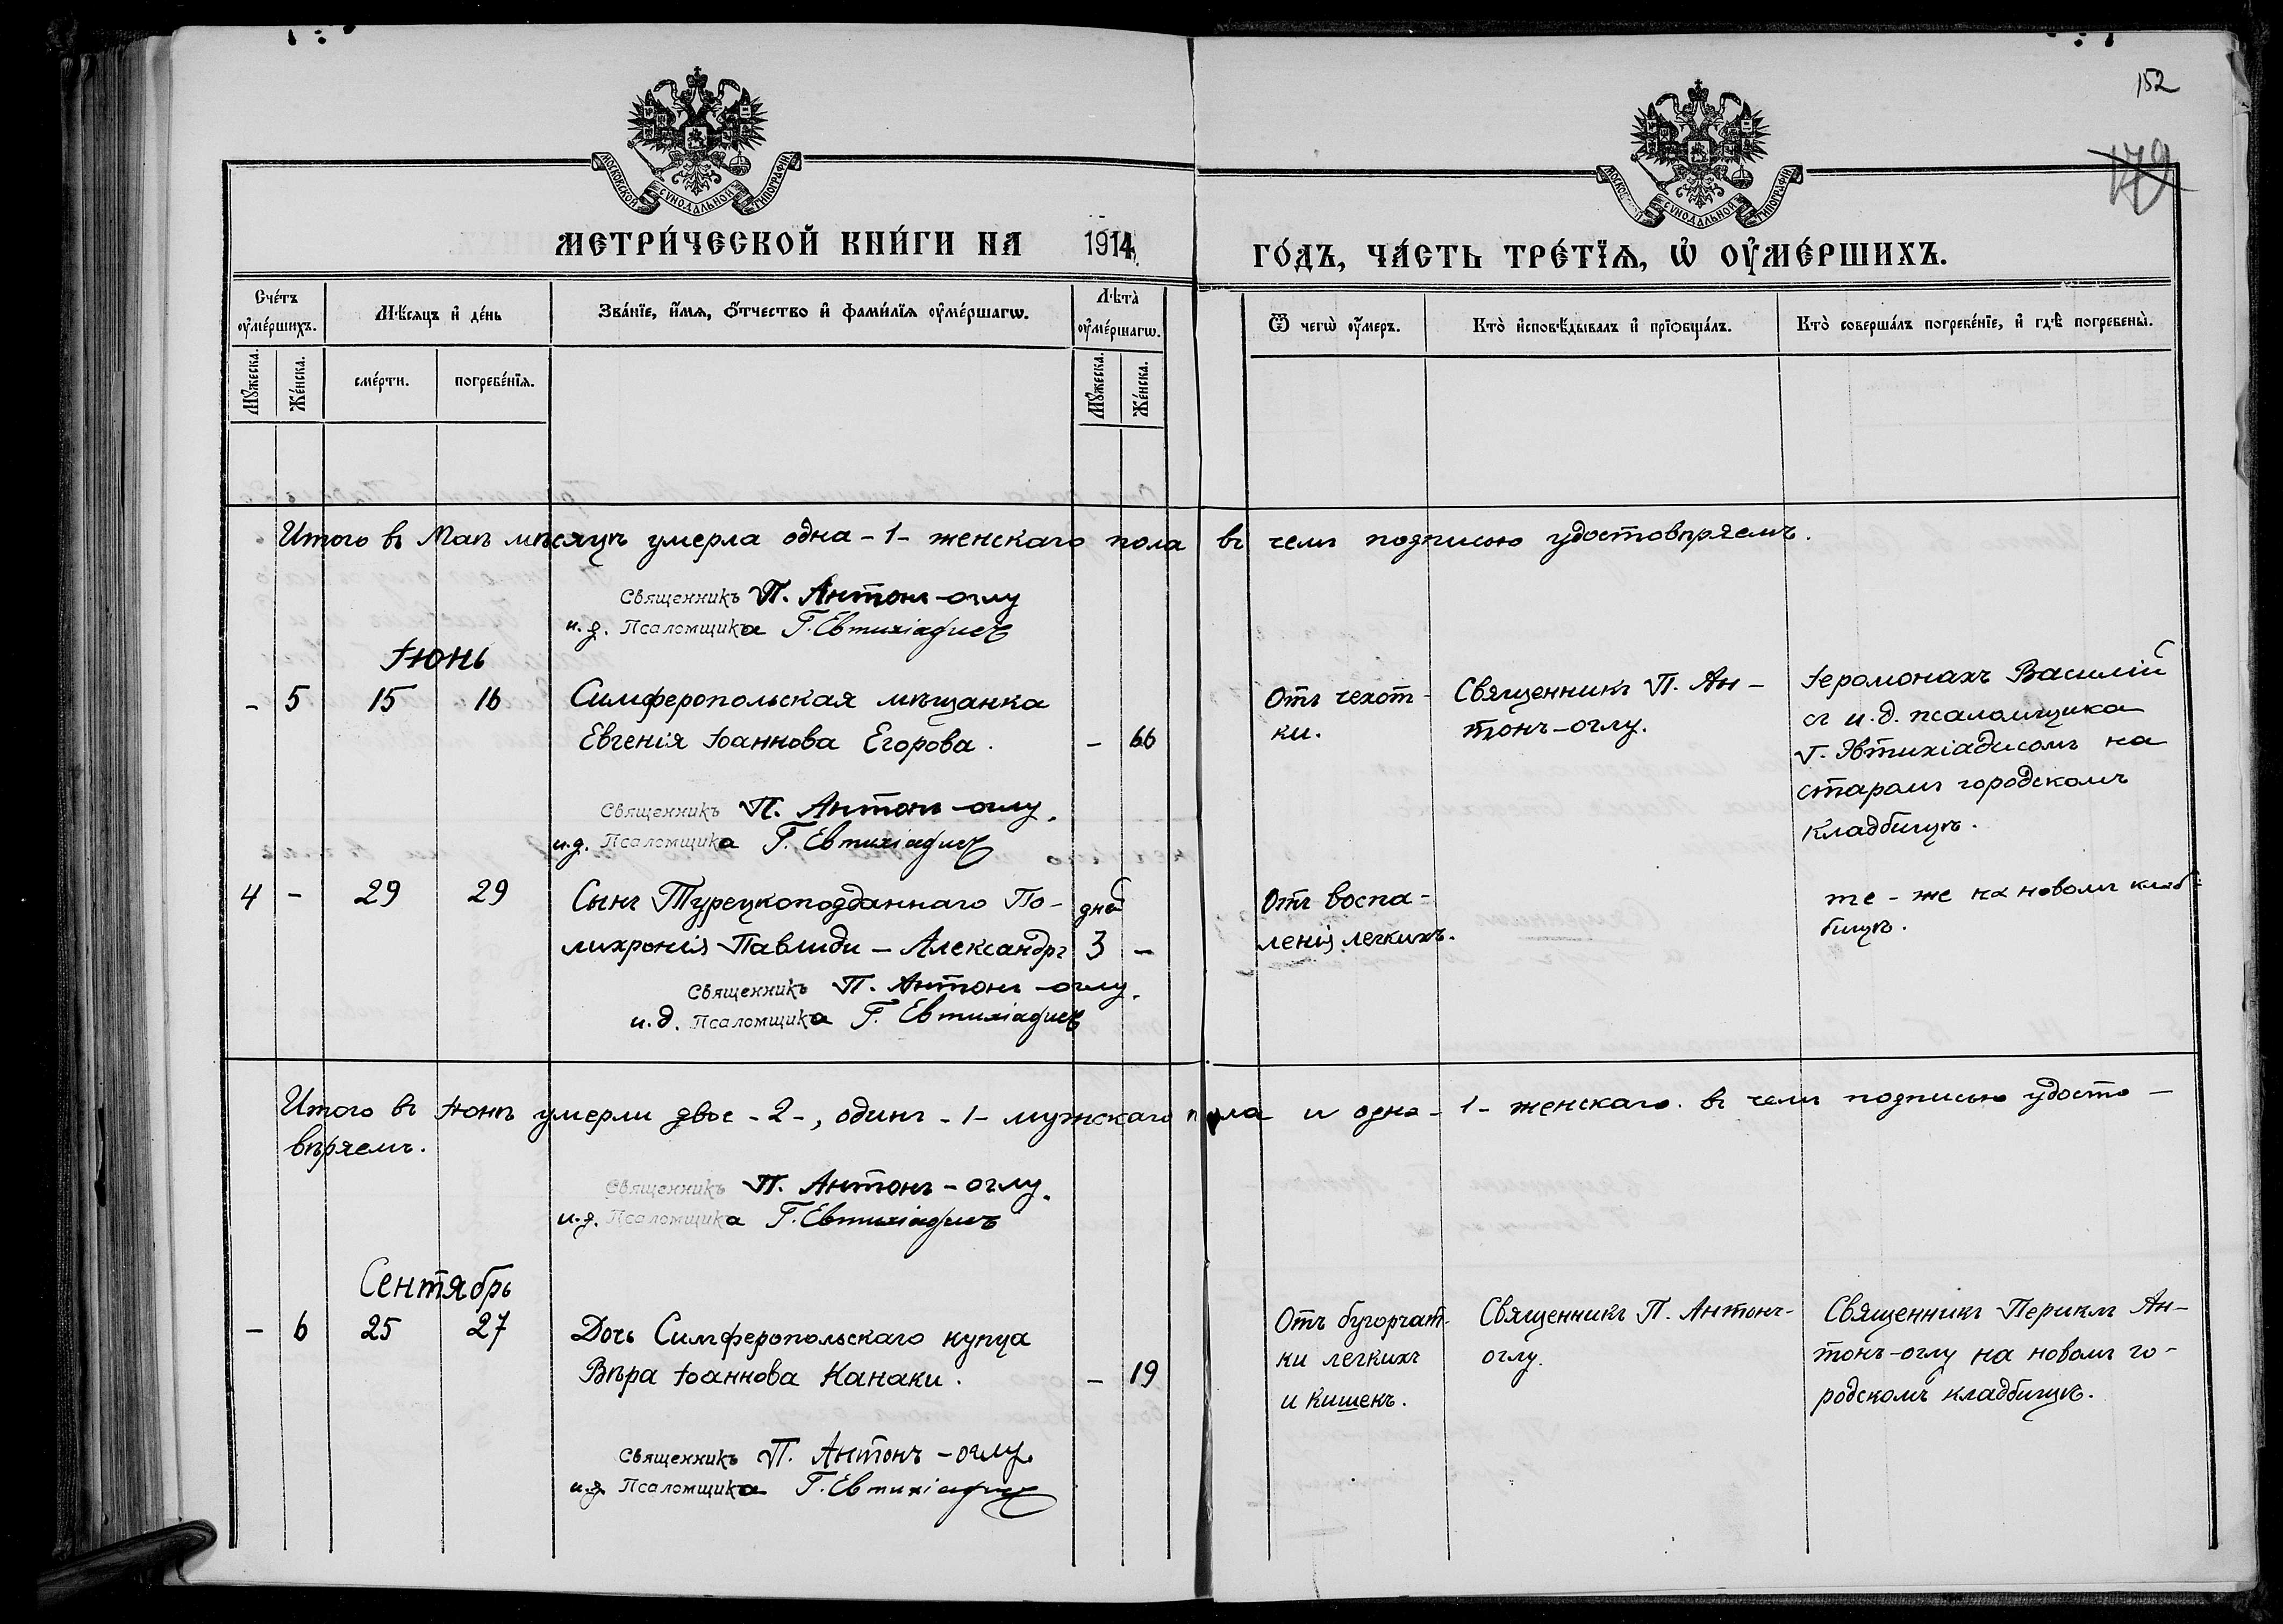 152
179
МОСКОВСКОЙ СѴНОДАЛЬНОЙ ТИПОГРАФІИ
МОСКОВСКОЙ СѴНОДАЛЬНОЙ ТИПОГРАФІИ
МЕТРИ́ЧЕСКОЙ КНИ́ГИ НА 1914 ГО́ДЪ, ЧА́СТЬ ТРЕ́ТЇѦ, Ѽ ОУ҆МЕ́РШИХЪ.
Сче́тъ оу҆ме́ршихъ.
Мѣ́сяцъ и҆ де́нь
Зва́нїе, и҆́мѧ, ѻ҆́тчество и҆ фами́лїѧ оу҆ме́ршагѡ.
Лѣта̀ оу҆ме́ршагѡ.
Ѿ чегѡ̀ оу҆́меръ.
Кто̀ и҆сповѣ́дывалъ и҆ прїѡбща́лъ.
Кто̀ соверша́лъ погребе́нїе, и҆ гдѣ̀ погребены̀.
Мꙋ́жеска.
Же́нска.
сме́рти.
погребе́нїѧ.
Мꙋ́жеска.
Же́нска.
Итого въ Маѣ мѣсяцѣ умерла одна -1- женскаго пола въ чемъ подписью удостовѣряемъ.
Священникъ П. Антонъ-оглу
и.д. Псаломщика Г. Евтихіадисъ
Іюнь
- 5 15 16 Симферопольская мѣщанка
Евгенія Іоаннова Егорова. - 66
Отъ чехот-
ки.
Священникъ П. Ан-
тонъ-оглу.
Іеромонахъ Василій
съ и.д. псаломщика
Г. Эвтихіадисомъ на
старомъ городскомъ
кладбищѣ.
Священникъ П. Антонъ-оглу.
и.д. Псаломщика Г. Евтихіадисъ
4 - 29 29 Сынъ Турецкоподданнаго По-
лихронія Павлиди - Александръ
дней
3 -
Отъ воспа-
ленія легкихъ.
те-же на новомъ клад-
бищѣ.
Священникъ П. Антонъ-оглу.
и.д. Псаломщика Г. Евтихіадисъ
Итого въ Іюнѣ умерли двое -2-, одинъ -1- мужскаго пола и одна -1- женскаго. въ чемъ подписью удосто-
вѣряемъ.
Священникъ П. Антонъ-оглу.
и.д. Псаломщика Г. Евтихіадисъ
Сентябрь
- 6 25 27 Дочь Симферопольскаго купца
Вѣра Іоаннова Канаки. - 19
Отъ бугорчат-
ки легкихъ
и кишекъ.
Священникъ П. Антонъ-
оглу.
Священникъ Периклъ Ан-
тонъ-оглу на новомъ го-
родскомъ кладбищѣ.
Священникъ П. Антонъ-оглу.
и.д. Псаломщика Г. Евтихіадисъ